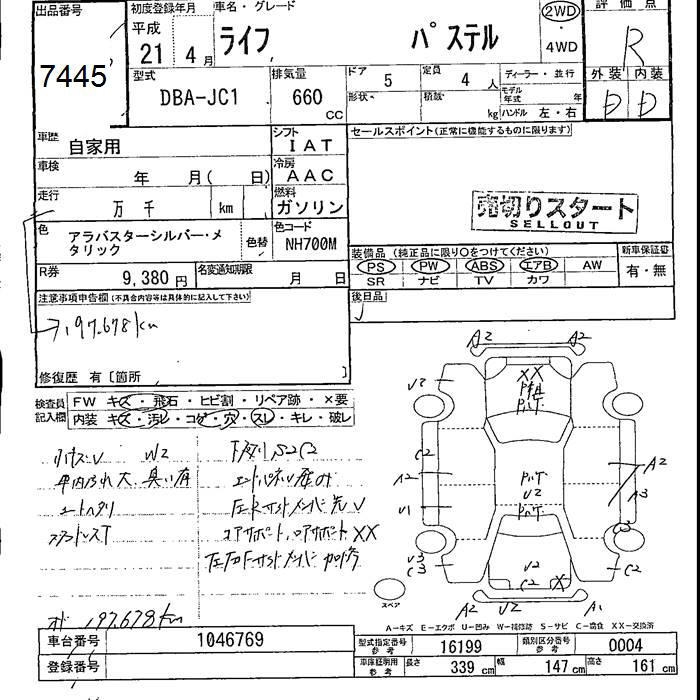 出品番号
7445
初度登録年月
平成
21 4 月
車名・グレード
ライフ パステル
2WD
・
4WD
評価点
R
型式
DBA-JC1
排気量
660
CC
ドア 5
定員 4 人
ディーラー・並行
形状
積載 kg
モデル年式 年
ハンドル 左・右
外装 内装
D D
車歴 自家用
シフト IAT
車検 年 月( 日)
冷房 AAC
走行 万 千 km
燃料 ガソリン
色 アラバスターシルバー・メタリック
色替
色コード NH700M
R券 9,380 円
名変通知期限 月 日
セールスポイント(正常に機能するものに限ります)
売切りスタート
SELLOUT
装備品 (純正品に限り○をつけてください)
新車保証書
PS PW ABS エアB AW
有・無
SR ナビ TV カワ
後日品
注意事項申告欄 (不具合内容等は具体的に記入して下さい)
197.678km
修復歴 有 [箇所 ]
検査員記入欄
FW キズ・飛石・ヒビ割・リペア跡・×要
内装 キズ・汚レ・コゲ・穴・スレ・キレ・破レ
W2
下廻りS2C2
車内汚れ大 臭い有
コアサポート、ロアサポートXX
197.678km
A2 A2
XX
V2
C2
A2
V1
V3
C3
P.K.T
V2
A2
A3
C3
C2
V2
C2 X
A2 V2 A1
スペア
A-キズ E-エクボ U-凹み W-補修跡 S-サビ C-腐食 XX-交換済
車台番号 1046769
登録番号
型式指定番号 参考 16199
類別区分番号 参考 0004
車庫証明用 参考 長さ 339 cm 幅 147 cm 高さ 161 cm